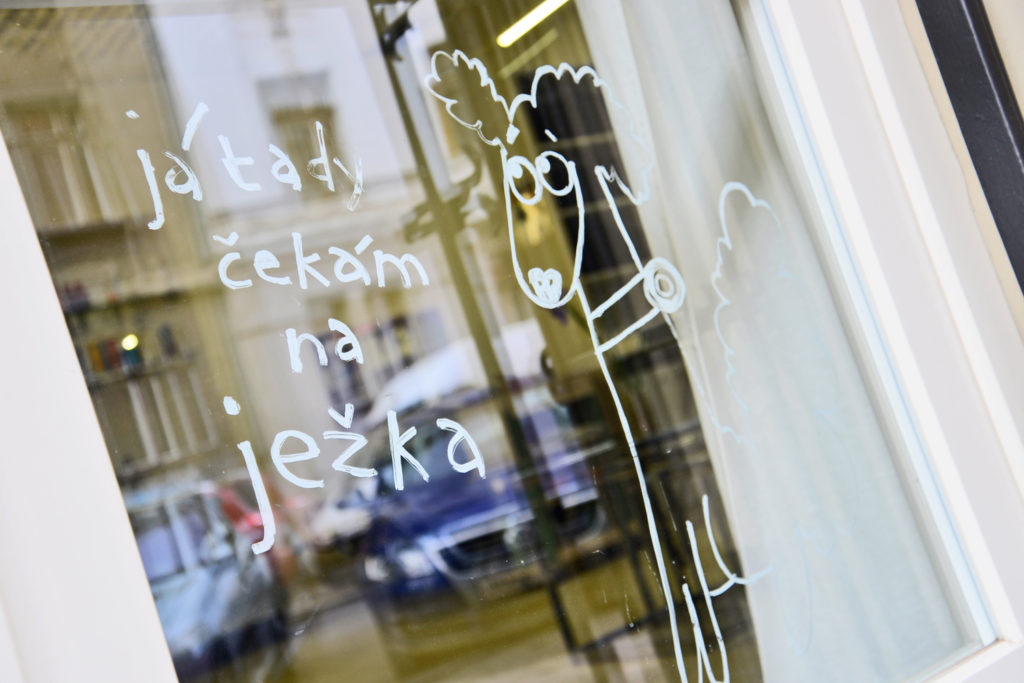 já tady
čekám
na
ježka